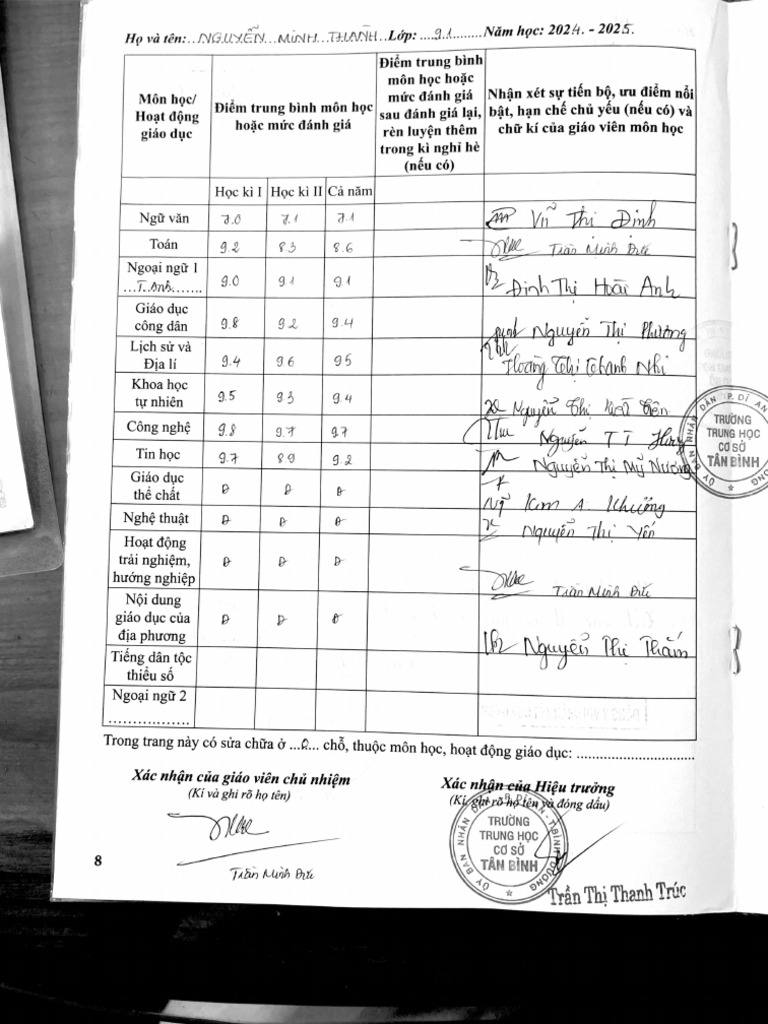 Họ và tên: NGUYỄN MINH THÀNH Lớp: 9.1 Năm học: 2024. - 2025.
Môn học/ Hoạt động giáo dục
Điểm trung bình môn học hoặc mức đánh giá
Điểm trung bình môn học hoặc mức đánh giá sau đánh giá lại, rèn luyện thêm trong kì nghỉ hè (nếu có)
Nhận xét sự tiến bộ, ưu điểm nổi bật, hạn chế chủ yếu (nếu có) và chữ kí của giáo viên môn học
Học kì I Học kì II Cả năm
Ngữ văn 7.0 7.1 7.1 Vũ Thị Định
Toán 9.2 8.3 8.6 Trần Minh Đức
Ngoại ngữ 1 T. Anh 9.0 9.1 9.1 Đinh Thị Hoài Anh
Giáo dục công dân 9.8 9.2 9.4 Nguyễn Thị Phương
Lịch sử và Địa lí 9.4 9.6 9.5 Hoàng Thị Thanh Nhi
Khoa học tự nhiên 9.5 9.3 9.4 Nguyễn Thị
Công nghệ 9.8 9.7 9.7 Nguyễn T T
Tin học 9.7 8.9 9.2 Nguyễn Thị Mỹ Nương
Giáo dục thể chất Đ Đ Đ
Kim A. Khương
Nghệ thuật Đ Đ Đ Nguyễn Thị Yến
Hoạt động trải nghiệm, hướng nghiệp Đ Đ Đ Trần Minh Đức
Nội dung giáo dục của địa phương Đ Đ Đ Nguyễn Thị Thắm
Tiếng dân tộc thiểu số
Ngoại ngữ 2
ỦY BAN NHÂN DÂN TP. DĨ AN
TRƯỜNG
TRUNG HỌC
CƠ SỞ
TÂN BÌNH
Trong trang này có sửa chữa ở chỗ, thuộc môn học, hoạt động giáo dục:
Xác nhận của giáo viên chủ nhiệm
(Kí và ghi rõ họ tên)
Trần Minh Đức
Xác nhận của Hiệu trưởng
(Kí, ghi rõ họ tên và đóng dấu)
TRƯỜNG
TRUNG HỌC
CƠ SỞ
TÂN BÌNH
Trần Thị Thanh Trúc
8